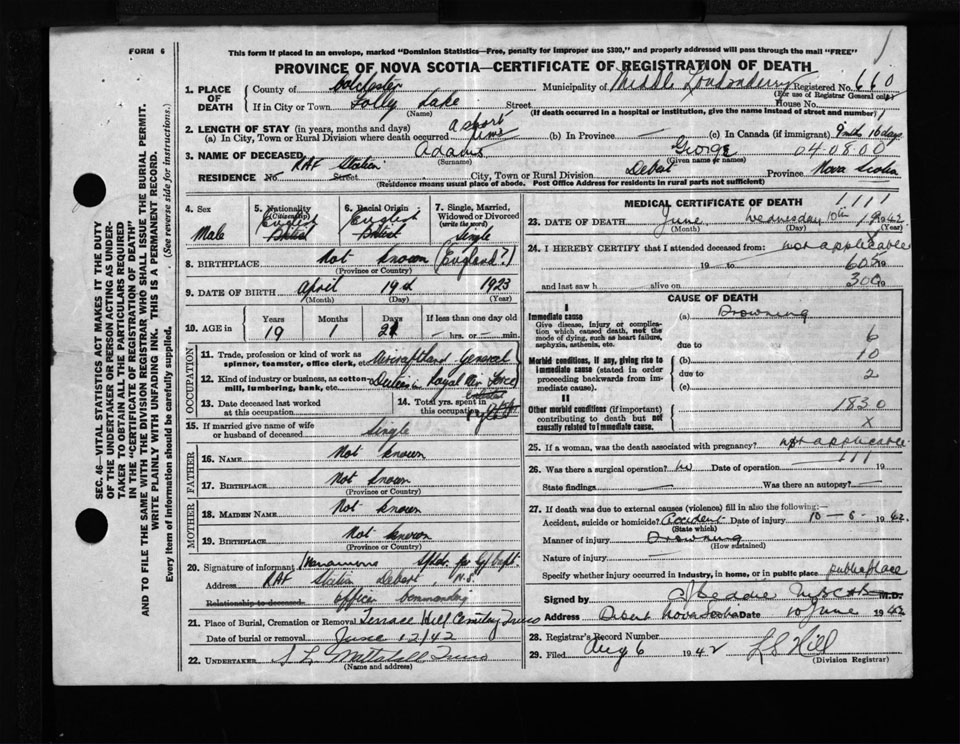 FORM 6
This form if placed in an envelope, marked "Dominion Statistics—Free, penalty for improper use $300," and properly addressed will pass through the mail "FREE"
PROVINCE OF NOVA SCOTIA—CERTIFICATE OF REGISTRATION OF DEATH
1. PLACE OF DEATH
County of Colchester Municipality of Middle Londonderry Registered No. 660
(For use of Registrar General only)
If in City or Town Folly Lake Street House No.
(Name) (If death occurred in a hospital or institution, give the name instead of street and number)
2. LENGTH OF STAY (in years, months and days)
(a) In City, Town or Rural Division where death occurred a short time (b) In Province — (c) In Canada (if immigrant) 8 mths 16 days
3. NAME OF DECEASED Adams George 040800
(Surname) (Given name or names)
RESIDENCE No. RAF Station Street City, Town or Rural Division Debert Province Nova Scotia
(Residence means usual place of abode. Post Office Address for residents in rural parts not sufficient)
4. Sex Male
5. Nationality (Citizenship) English British
6. Racial Origin English British
7. Single, Married, Widowed or Divorced (write the word) Single
8. BIRTHPLACE Not known (England?)
(Province or Country)
9. DATE OF BIRTH April 19th 1923
(Month) (Day) (Year)
10. AGE in Years Months Days If less than one day old
19 1 21 — hrs. or — min.
OCCUPATION
11. Trade, profession or kind of work as spinner, teamster, office clerk, etc. Aircrafthand General
12. Kind of industry or business, as cotton mill, lumbering, bank, etc. Duties in Royal Air Force
13. Date deceased last worked at this occupation
14. Total yrs. spent in this occupation
15. If married give name of wife or husband of deceased Single
FATHER
16. NAME Not known
17. BIRTHPLACE Not known
(Province or Country)
MOTHER
18. MAIDEN NAME Not known
19. BIRTHPLACE Not known
(Province or Country)
20. Signature of informant
Address RAF Station Debert, N.S.
Relationship to deceased Officer Commanding
21. Place of Burial, Cremation or Removal Terrace Hill Cemetery Truro
Date of burial or removal June 12/42
22. UNDERTAKER Truro
(Name and address)
MEDICAL CERTIFICATE OF DEATH
23. DATE OF DEATH June Wednesday 10th 1942
(Month) (Day) (Year)
24. I HEREBY CERTIFY that I attended deceased from: not applicable
19 to 605
and last saw h alive on 300
CAUSE OF DEATH
I
Immediate cause
Give disease, injury or complication which caused death, not the mode of dying, such as heart failure, asphyxia, asthenia, etc.
(a) Drowning
due to 6
Morbid conditions, if any, giving rise to immediate cause (stated in order proceeding backwards from immediate cause).
(b) 10
due to 2
(c)
II
Other morbid conditions (if important) contributing to death but not causally related to immediate cause.
1830
X
25. If a woman, was the death associated with pregnancy? not applicable
26. Was there a surgical operation? no Date of operation — 111 19
State findings — Was there an autopsy? —
27. If death was due to external causes (violence) fill in also the following:—
Accident, suicide or homicide? Accident Date of injury 10 – 6 – 1942.
(State which)
Manner of injury Drowning
(How sustained)
Nature of injury —
Specify whether injury occurred in industry, in home, or in public place public place
Signed by M.D.
Address Debert Nova Scotia Date 10 June 1942
28. Registrar's Record Number
29. Filed Aug 6 1942 L S Hill
(Division Registrar)
SEC. 46—VITAL STATISTICS ACT MAKES IT THE DUTY OF THE UNDERTAKER OR PERSON ACTING AS UNDERTAKER TO OBTAIN ALL THE PARTICULARS REQUIRED IN THE "CERTIFICATE OF REGISTRATION OF DEATH" AND TO FILE THE SAME WITH THE DIVISION REGISTRAR WHO SHALL ISSUE THE BURIAL PERMIT.
WRITE PLAINLY WITH UNFADING INK. THIS IS A PERMANENT RECORD.
Every item of information should be carefully supplied. (See reverse side for instructions.)